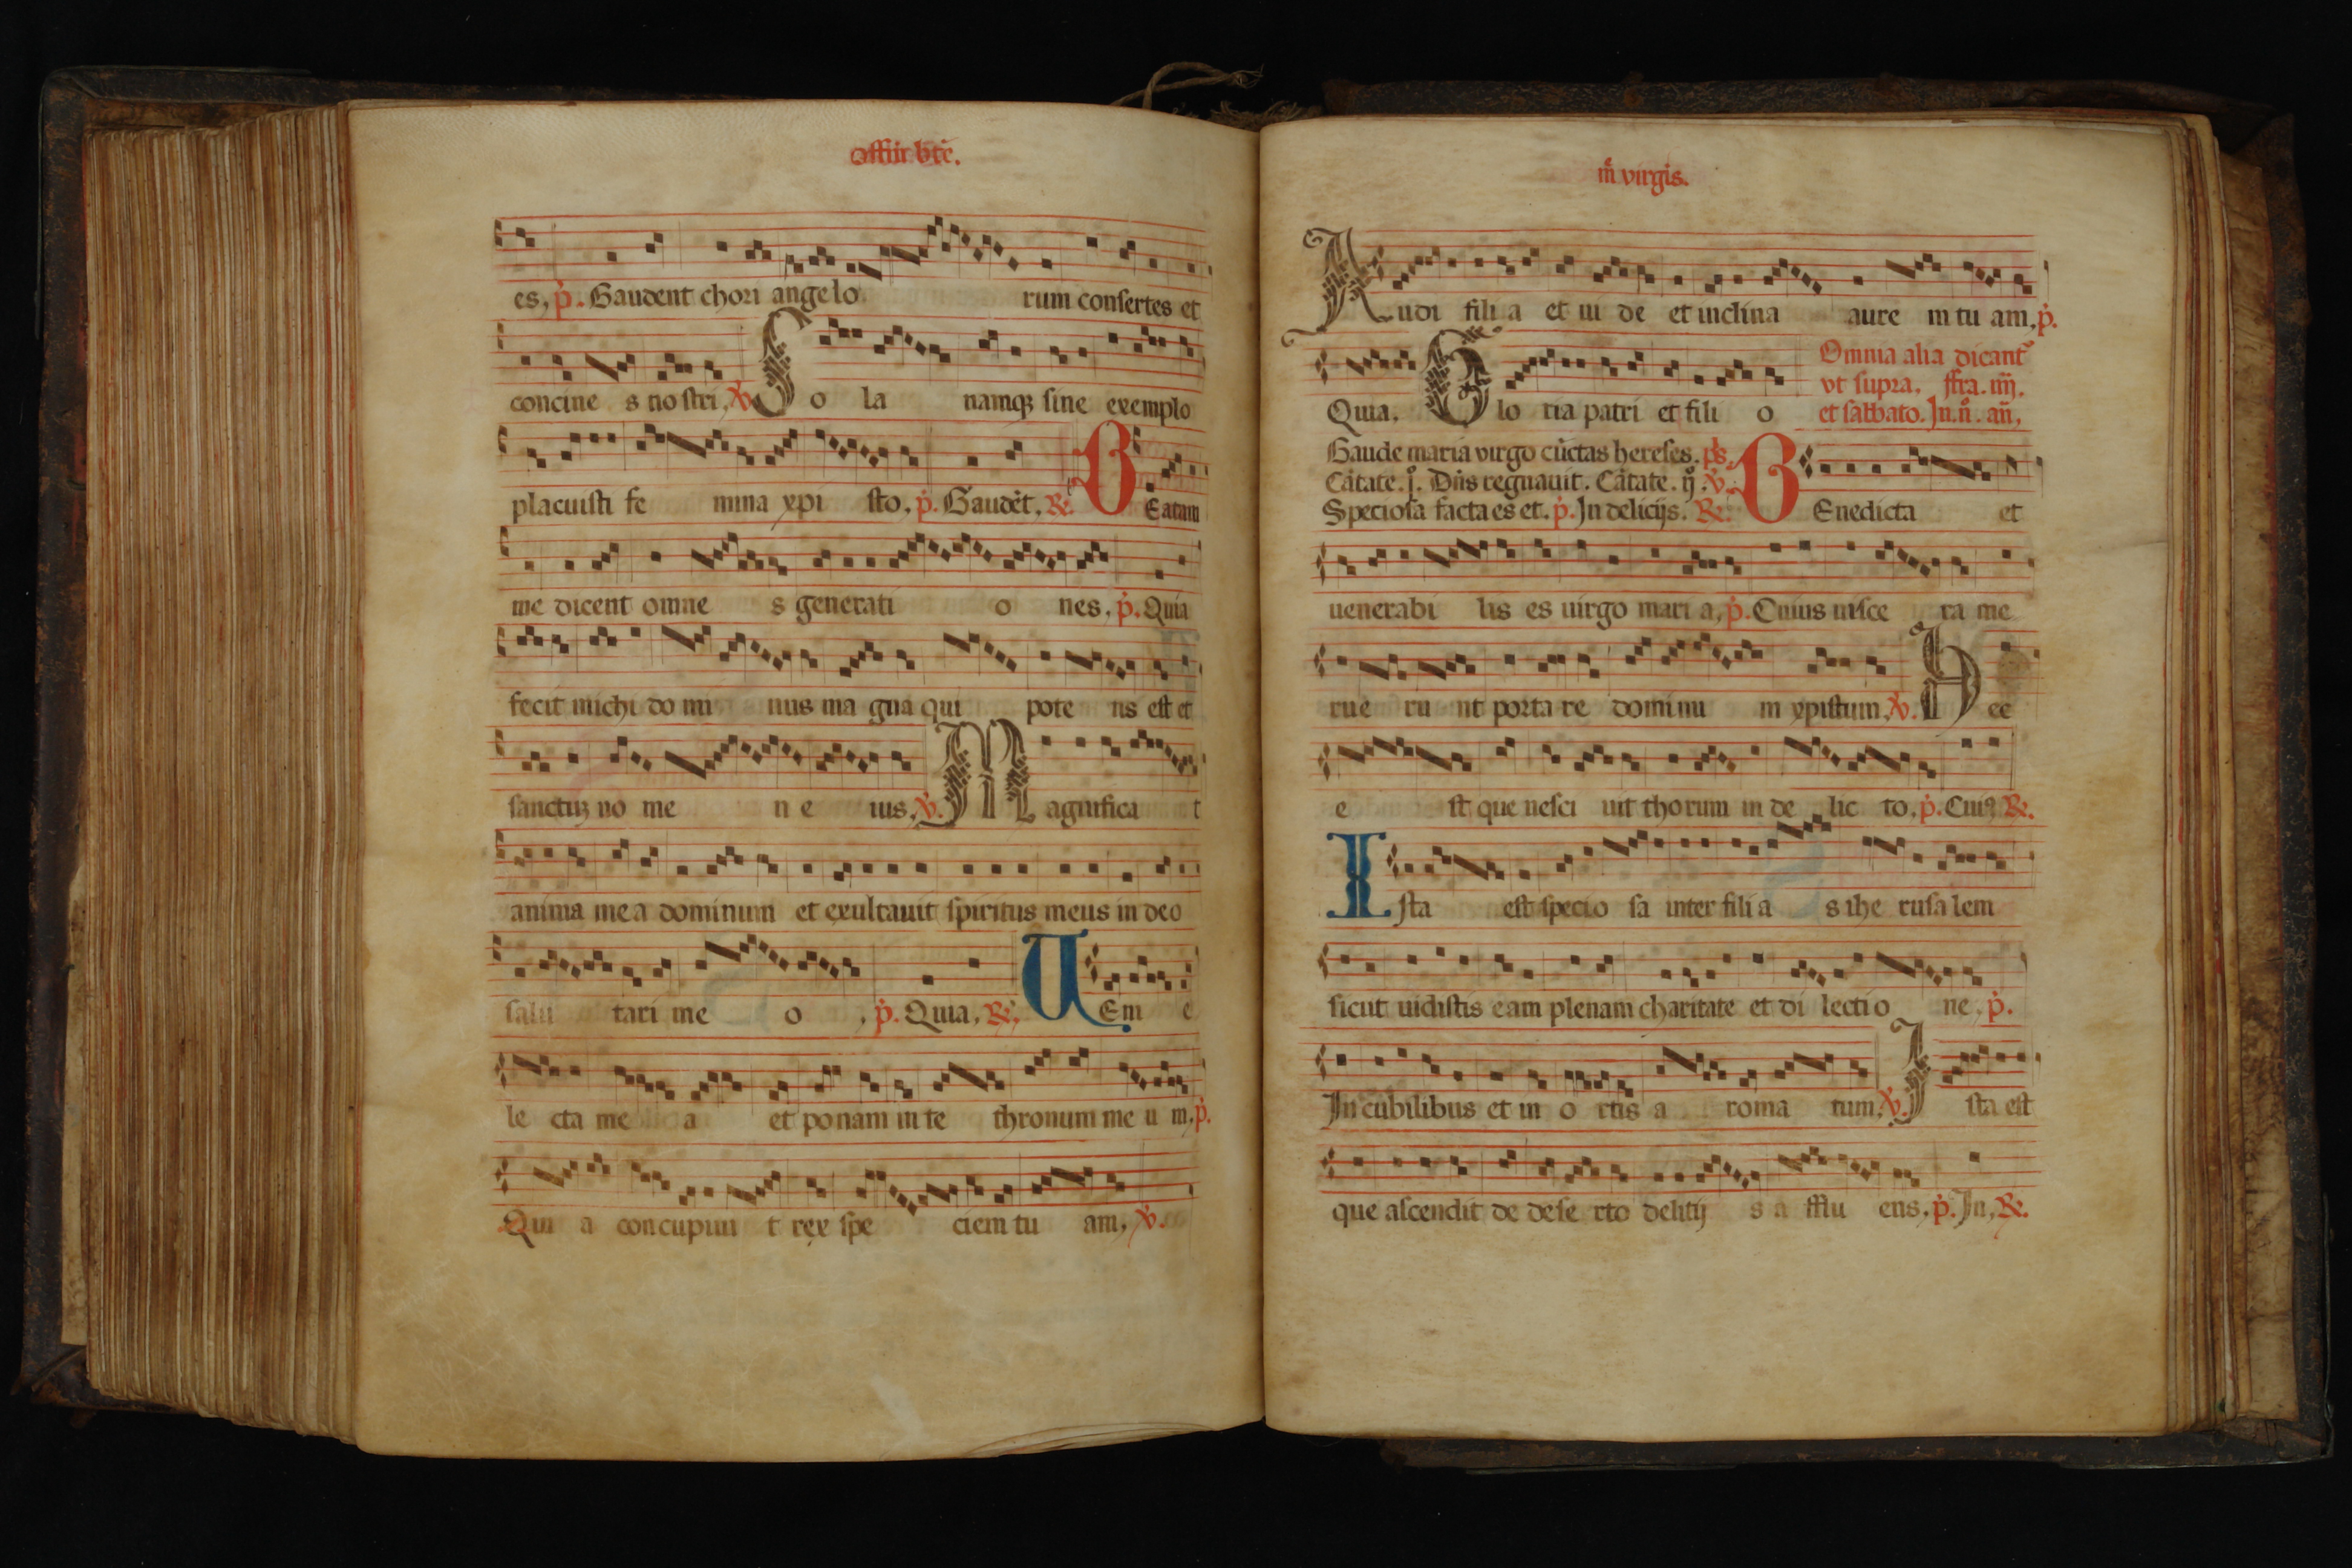 offiū bt̄e.
es, p̄. Gaudent chori angelo rum consertes et
concine s nostri, v̄. So la namqꝫ sine exemplo
placuisti fe mina xpi sto, p̄. Gaudēt, R̄. BEatam
me dicent omne s generati o nes, p̄. Quia
fecit michi do mi nus ma gna qui pote ns est et
sanctuꝫ no me n e ius, v̄. Magnifica t
anima mea dominum et exultauit spiritus meus in deo
salu tari me o, p̄. Quia, R̄. UEni e
le cta me a et ponam in te thronum me u m, p̄.
Qui a concupiui t rex spe ciem tu am, v̄.
m̄ virgis.
Audi fili a et ui de et inclina aure m tu am, p̄.
Quia. Glo ria patri et fili o
Omnia alia dicant᷑
vt supra. ffra. iiij.
et sabbato. In. n̊. an̄,
Gaude maria virgo cūctas hereses. ps.
Cātate. j̊. Dn̄s regnauit. Cātate. ij̊. v̄.
Speciosa facta es et. p̄. In delicijs. R̄. BEnedicta et
uenerabi lis es uirgo mari a, p̄. Cuius uisce ra me
rue ru nt porta re dominu m xpistum, v̄. Hec
e st que nesci uit thorum in de lic to, p̄. Cuiꝰ R̄.
Ista est specio sa inter fili a s ihe rusa lem
sicut uidistis eam plenam charitate et di lectio ne, p̄.
In cubilibus et in o rtis a roma tum, v̄. Ista est
que ascendit de dese rto delitij s a fflu ens, p̄. In, R̄.